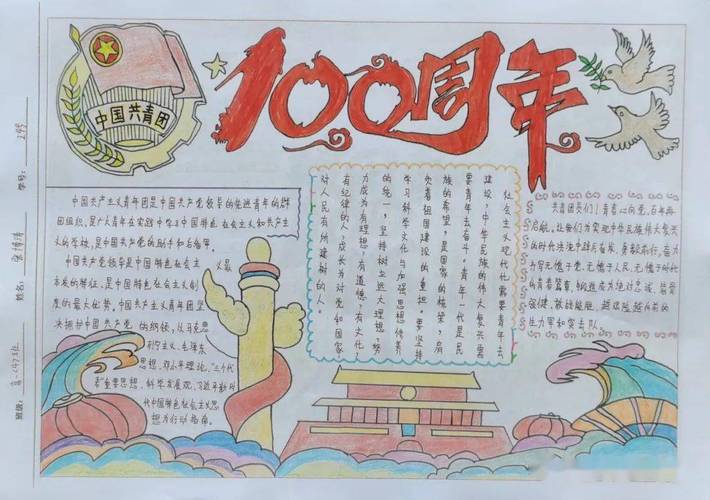 中国共青团
100周年
中国共产主义青年团是中国共产党领导的先进青年的群
团组织,是广大青年在实践中学习中国特色社会主义和共产主
义的学校,是中国共产党的助手和后备军。
中国共产党领导是中国特色社会主义最
本质的特征,是中国特色社会主义制
度的最大优势。中国共产主义青年团坚
决拥护中国共产党的纲领,以马克思
列宁主义、毛泽东
思想、邓小平理论、"三个代
表"重要思想、科学发展观、习近平新时
代中国特色社会主义思
想为行动指南。
社会主义现代化需要青年去
建设,中华民族的伟大复兴需
要青年去奋斗。青年一代是民
族的希望,是国家的栋梁,肩
负着祖国建设的重担。要坚持
学习科学文化与加强思想修养
的统一,坚持树立远大理想,努
力成为有理想,有道德,有文化,
有纪律的人,成长为对党和国家
对人民有所建树的人。
共青团员们!青春心向党,百年再
启航,让我们为实现中华民族伟大复兴
的时代洪流中踔厉奋发、勇毅前行,奋力
书写无愧于党、无愧于人民、无愧于时代
的青春篇章,锻造成为绝对忠诚、
敢破敢立
生力军和突击队。
班级:
姓名:
学号: